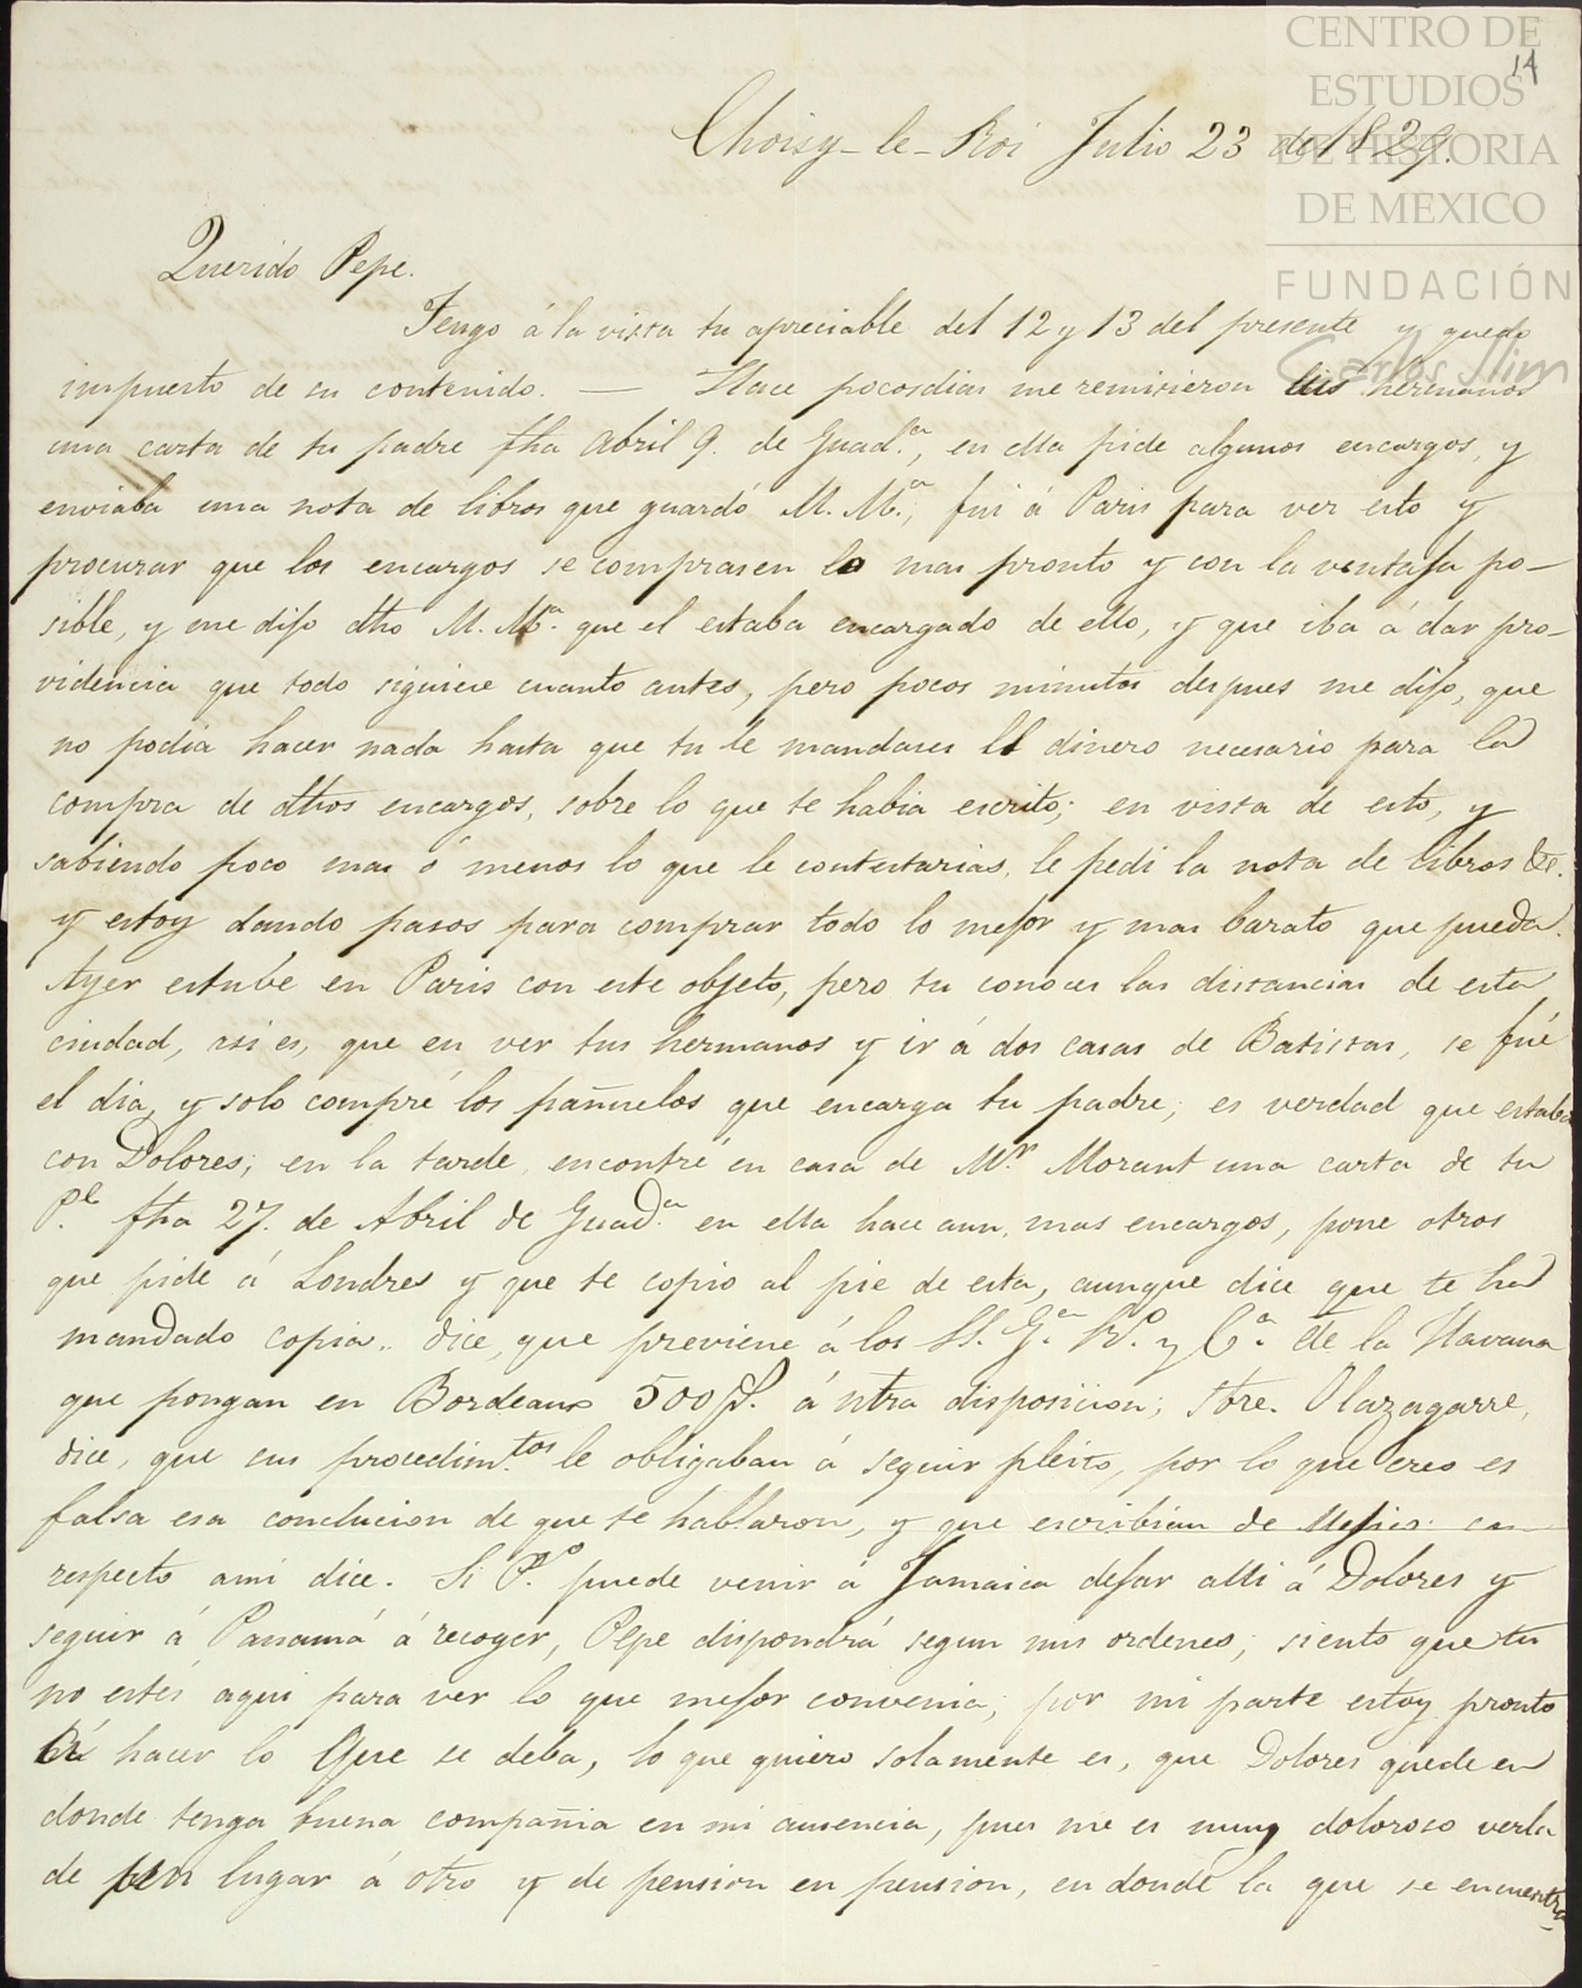 CENTRO DE
ESTUDIOS
DE HISTORIA
DE MEXICO
FUNDACIÓN
Carlos Slim
14
Choisy-le-Roi Julio 23 de 1829.
Querido Pepe.
Tengo á la vista tu apreciable del 12 y 13 del presente y quedo
impuesto de su contenido. — Hace pocos dias me remitieron tus hermanos
una carta de tu padre fha Abril 9. de Guad.ª, en ella pide algunos encargos, y
enviaba una nota de libros que guardó M. M.ª, fui á Paris para ver esto y
procurar que los encargos se comprasen lo mas pronto y con la ventaja po-
sible, y me dijo dho M. M.ª que el estaba encargado de ello, y que iba á dar pro-
videncia que todo siguiese cuanto antes, pero pocos minutos despues me dijo, que
no podia hacer nada hasta que tu le mandases el dinero necesario para la
compra de dhos encargos, sobre lo que te habia escrito; en vista de esto, y
sabiendo poco mas ó menos lo que le contestarias, le pedi la nota de libros &c.
y estoy dando pasos para comprar todo lo mejor y mas barato que pueda.
Ayer estube en Paris con este objeto, pero tu conoces las distancias de esta
ciudad, asi es, que en ver tus hermanos y ir á dos casas de Batistas, se fué
el dia, y solo compré los pañuelos que encarga tu padre; es verdad que estaba
con Dolores; en la tarde, encontré en casa de M.r Morant una carta de tu
P.e fha 27. de Abril de Guad.ª en ella hace aun, mas encargos, pone otros
que pide á Londres y que te copio al pie de esta, aunque dice que te ha
mandado copia.. dice, que previene á los SS. G.ª W.º y C.ª de la Havana
que pongan en Bordeaux 500 p. á ntra disposicion; sbre. Olazagarre,
dice, que sus procedim.tos le obligaban á seguir pleito, por lo que creo es
falsa esa conclucion de que te hablaron, y que escribian de Mejico. con
respecto a mi dice. Si P.º puede venir á Jamaica dejar alli á Dolores y
seguir á Panamá á recoger, Pepe dispondrá segun mis ordenes; siento que tu
no estés aqui para ver lo que mejor convenia; por mi parte estoy pronto
á hacer lo que se deba, lo que quiero solamente es, que Dolores quede en
donde tenga buena compañia en mi ausencia, pues me es muy doloroso verla
de un lugar á otro y de pension en pension, en donde la que se encuentra